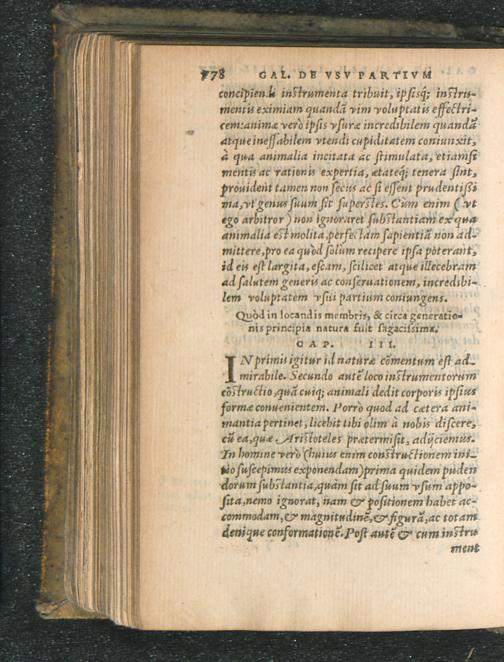 778 GAL. DE VSV PARTIVM
concipiendi inſtrumenta tribuit, ipſisq́; inſtru-
mentis eximiam quandā vim voluptatis effectri-
cem: animæ verò ipſis vſuræ incredibilem quandā
atque ineffabilem vtendi cupiditatem coniunxit,
à qua animalia incitata ac ſtimulata, etiamſi
mentis ac rationis expertia, ætateq́; tenera ſint,
prouident tamen non ſecus ac ſi eſſent prudentiſsi
ma, vt genus ſuum ſit ſuperſtes. Cùm enim (vt
ego arbitror) non ignoraret ſubſtantiam ex qua
animalia eſt molita, perfectam ſapientiā non ad-
mittere, pro ea quòd ſolùm recipere ipſa poterant,
id eis eſt largita, eſcam, ſcilicet atque illecebram
ad ſalutem generis ac conſeruationem, incredibi-
lem voluptatem vſui partium coniungens.
Quòd in locandis membris, & circa generatio-
nis principia natura fuit ſagaciſsima.
CAP. III.
IN primis igitur id naturæ cōmentum eſt ad-
mirabile. Secundo autē loco inſtrumentorum
cōſtructio, quā cuiq; animali dedit corporis ipſius
formæ conuenientem. Porrò quod ad cætera ani-
mantia pertinet, licebit tibi olim à nobis diſcere,
cū ea, quæ Ariſtoteles prætermiſit, adijciemus.
In homine verò (huius enim conſtructionem ini-
tio ſuſcepimus exponendam) prima quidem puden
dorum ſubſtantia, quàm ſit ad ſuum vſum appo-
ſita, nemo ignorat, nam & poſitionem habet ac-
commodam, & magnitudinē, & figurā, ac totam
denique conformationē. Poſt autē & cum inſtru
ment